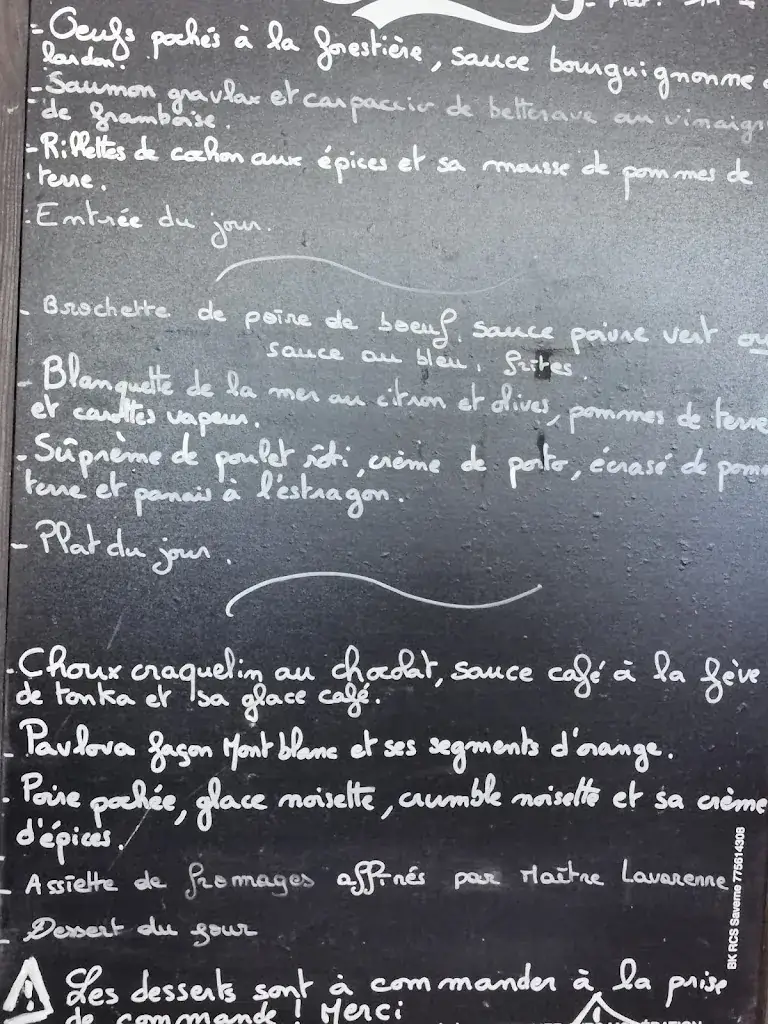 - Oeufs pochés à la forestière, sauce bourguignonne
lardon.
- Saumon gravlax et carpaccio de betterave au vinaigr
de framboise.
- Rillettes de cochon aux épices et sa mousse de pommes de
terre.
- Entrée du jour.
- Brochette de poire de boeuf, sauce poivre vert ou
sauce au bleu, frites.
- Blanquette de la mer au citron et olives, pommes de terre
et carottes vapeur.
- Sûprème de poulet rôti, crème de porto, écrasé de pom
terre et panais à l'estragon.
- Plat du jour.
- Choux craquelin au chocolat, sauce café à la fève
de tonka et sa glace café.
- Pavlova façon Mont blanc et ses segments d'orange.
- Poire pochée, glace noisette, crumble noisette et sa crème
d'épices.
- Assiette de fromages affinés par Maître Lavarenne
- Dessert du jour
Les desserts sont à commander à la prise
de commande ! Merci
BK RCS Saverne 775614308